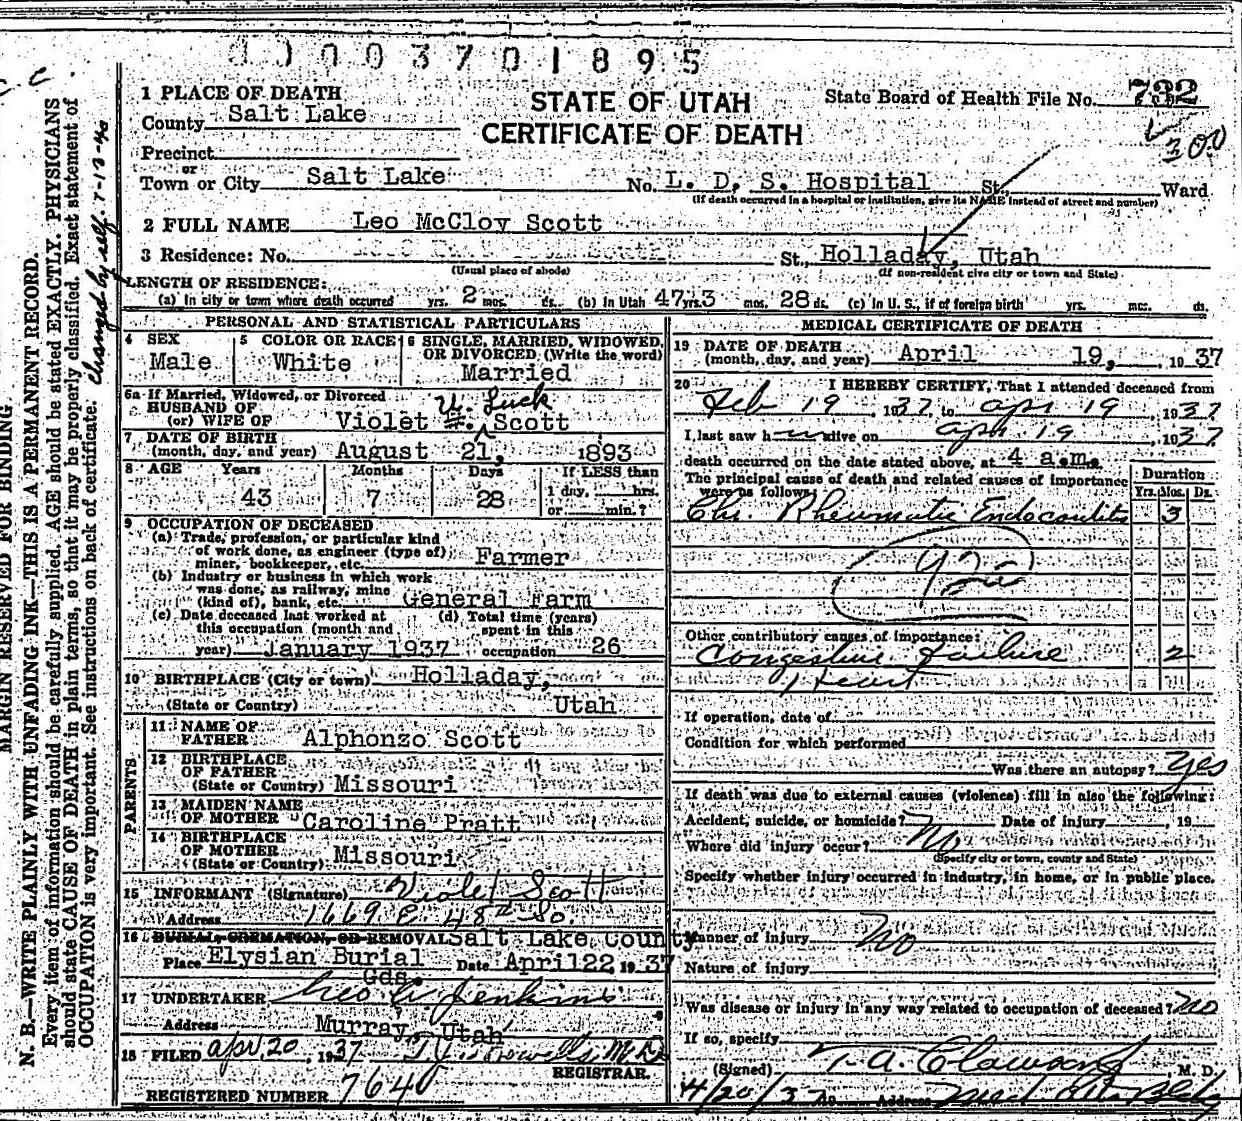 0003701895
1 PLACE OF DEATH
County Salt Lake
STATE OF UTAH
CERTIFICATE OF DEATH
State Board of Health File No. 732
300
Precinct
or
Town or City Salt Lake No. L. D. S. Hospital St., Ward
(If death occurred in a hospital or institution, give its NAME instead of street and number)
2 FULL NAME Leo McCloy Scott
3 Residence: No. St., Holladay, Utah
(Usual place of abode) (If non-resident give city or town and State)
LENGTH OF RESIDENCE:
(a) In city or town where death occurred yrs. 2 mos. ds. (b) In Utah 47 yrs. 3 mos. 28 ds. (c) In U. S., if of foreign birth yrs. mos. ds.
PERSONAL AND STATISTICAL PARTICULARS
4 SEX
Male
5 COLOR OR RACE
White
6 SINGLE, MARRIED, WIDOWED,
OR DIVORCED (Write the word)
Married
6a If Married, Widowed, or Divorced
HUSBAND OF
(or) WIFE OF Violet Scott
Luck
7 DATE OF BIRTH
(month, day, and year) August 21, 1893
8 AGE Years Months Days If LESS than
43 7 28 1 day, hrs.
or min.?
9 OCCUPATION OF DECEASED
(a) Trade, profession, or particular kind
of work done, as engineer (type of)
miner, bookkeeper, etc. Farmer
(b) Industry or business in which work
was done, as railway, mine
(kind of), bank, etc. General Farm
(c) Date deceased last worked at
this occupation (month and
year) January 1937
(d) Total time (years)
spent in this
occupation 26
10 BIRTHPLACE (City or town) Holladay,
(State or Country) Utah
PARENTS
11 NAME OF
FATHER Alphonzo Scott
12 BIRTHPLACE
OF FATHER
(State or Country) Missouri
13 MAIDEN NAME
OF MOTHER Caroline Pratt
14 BIRTHPLACE
OF MOTHER
(State or Country) Missouri
15 INFORMANT (Signature) Violet Scott
Address 1669 E. 48th So.
16 BURIAL, CREMATION, OR REMOVAL Salt Lake County
Place Elysian Burial Date April 22, 1937
Gds.
17 UNDERTAKER Geo A. Jenkins
Address Murray, Utah
18 FILED Apr 20, 1937 M. D.
REGISTRAR.
REGISTERED NUMBER 7640
MEDICAL CERTIFICATE OF DEATH
19 DATE OF DEATH
(month, day, and year) April 19, 1937
20 I HEREBY CERTIFY, That I attended deceased from
Feb 19, 1937, to Apr 19, 1937
I last saw him alive on Apr 19, 1937
death occurred on the date stated above, at 4 a.m.
The principal cause of death and related causes of importance
were as follows:
Duration
Yrs. Mos. Ds.
Chr. Rheumatic Endocarditis 3
Other contributory causes of importance:
Congestive Failure 2
Heart
If operation, date of
Condition for which performed
Was there an autopsy? Yes
If death was due to external causes (violence) fill in also the following:
Accident, suicide, or homicide? No Date of injury , 19
Where did injury occur?
(Specify city or town, county and State)
Specify whether injury occurred in industry, in home, or in public place.
Manner of injury No
Nature of injury
Was disease or injury in any way related to occupation of deceased? No
If so, specify
(Signed) T. A. Clawson, M. D.
4/20/37 Address Med Arts Bldg
MARGIN RESERVED FOR BINDING
N. B.—WRITE PLAINLY WITH UNFADING INK—THIS IS A PERMANENT RECORD.
Every item of information should be carefully supplied. AGE should be stated EXACTLY. PHYSICIANS
should state CAUSE OF DEATH in plain terms, so that it may be properly classified. Exact statement of
OCCUPATION is very important. See instructions on back of certificate.
Changed by self. 7-13-40